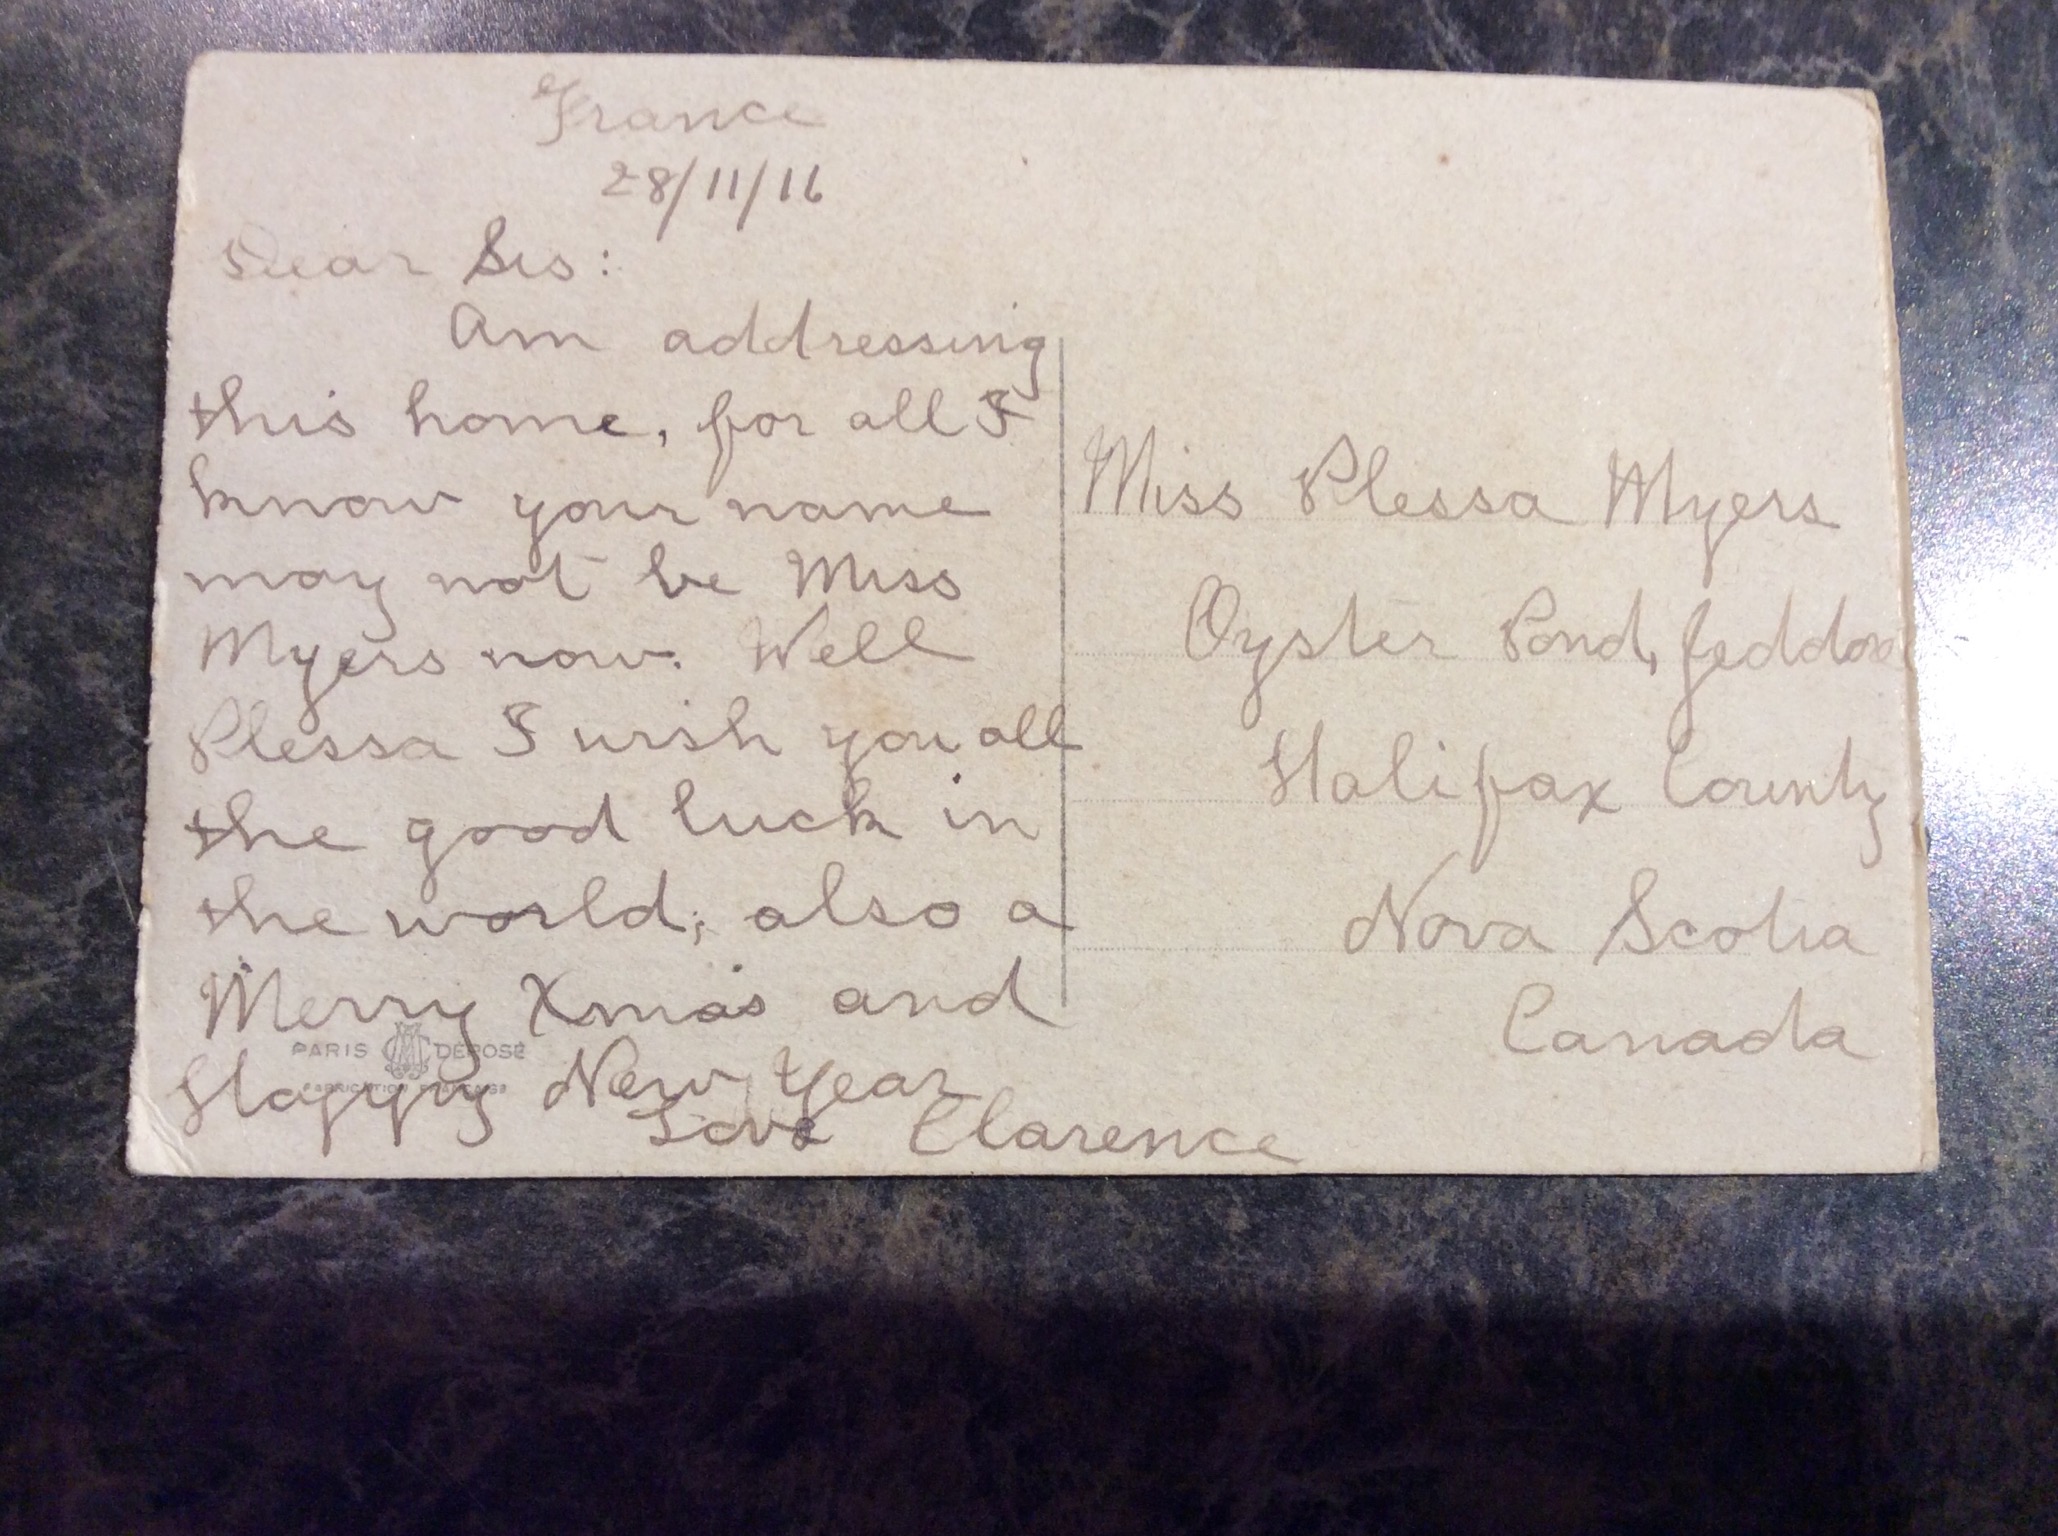 France
28/11/16
Dear Sis:
Am addressing
this home, for all I
know your name
may not be Miss
Myers now. Well
Plessa I wish you all
the good luck in
the world; also a
Merry Xmas and
Happy New Year
Love Clarence
PARIS DÉPOSÉ
FABRICATION FRANÇAISE
Miss Plessa Myers
Oyster Pond, Jeddore
Halifax County
Nova Scotia
Canada